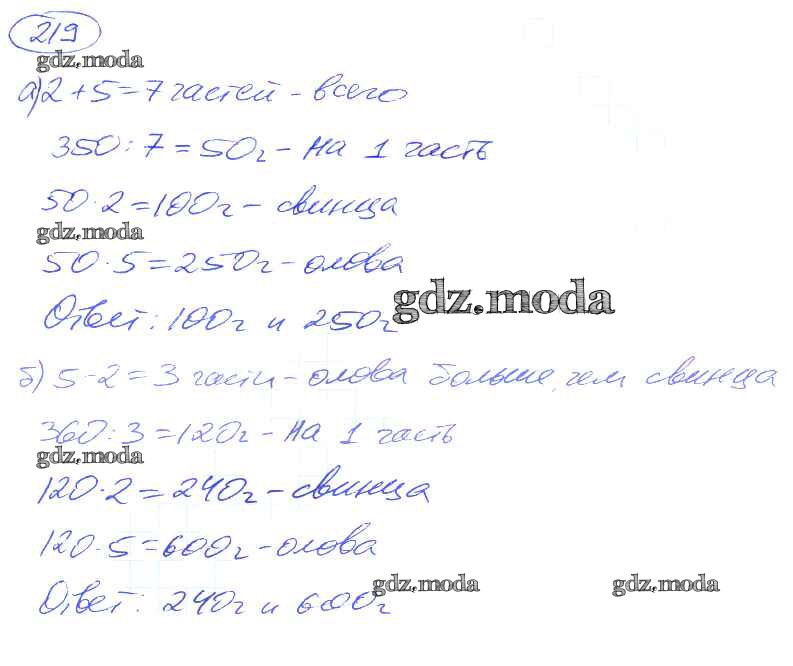 219
gdz.moda
а) 2+5=7 частей - всего
350:7=50г - на 1 часть
50·2=100г - свинца
gdz.moda
50·5=250г - олова
gdz.moda
Ответ: 100г и 250г
б) 5-2=3 части - олова больше, чем свинца
360:3=120г - на 1 часть
gdz.moda
120·2=240г - свинца
120·5=600г - олова
gdz.moda gdz.moda
Ответ: 240г и 600г